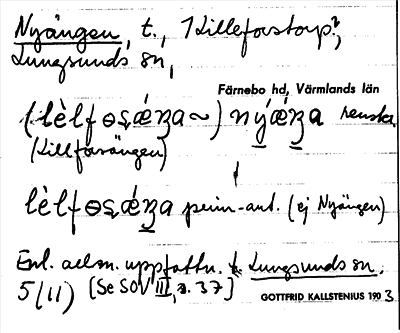 Nyängen, t., Lilleforstorp?,
Lungsunds sn,
Färnebo hd, Värmlands län
(lèlfɵsǽŋa ~) nýǽŋa
(Lillforsängen)
lèlfɵsǽŋa prim-ant. (ej Nyängen)
Enl. allm. uppfattn. Lungsunds sn.
5/11) [Se SOV III, s. 37]
GOTTFRID KALLSTENIUS 1903